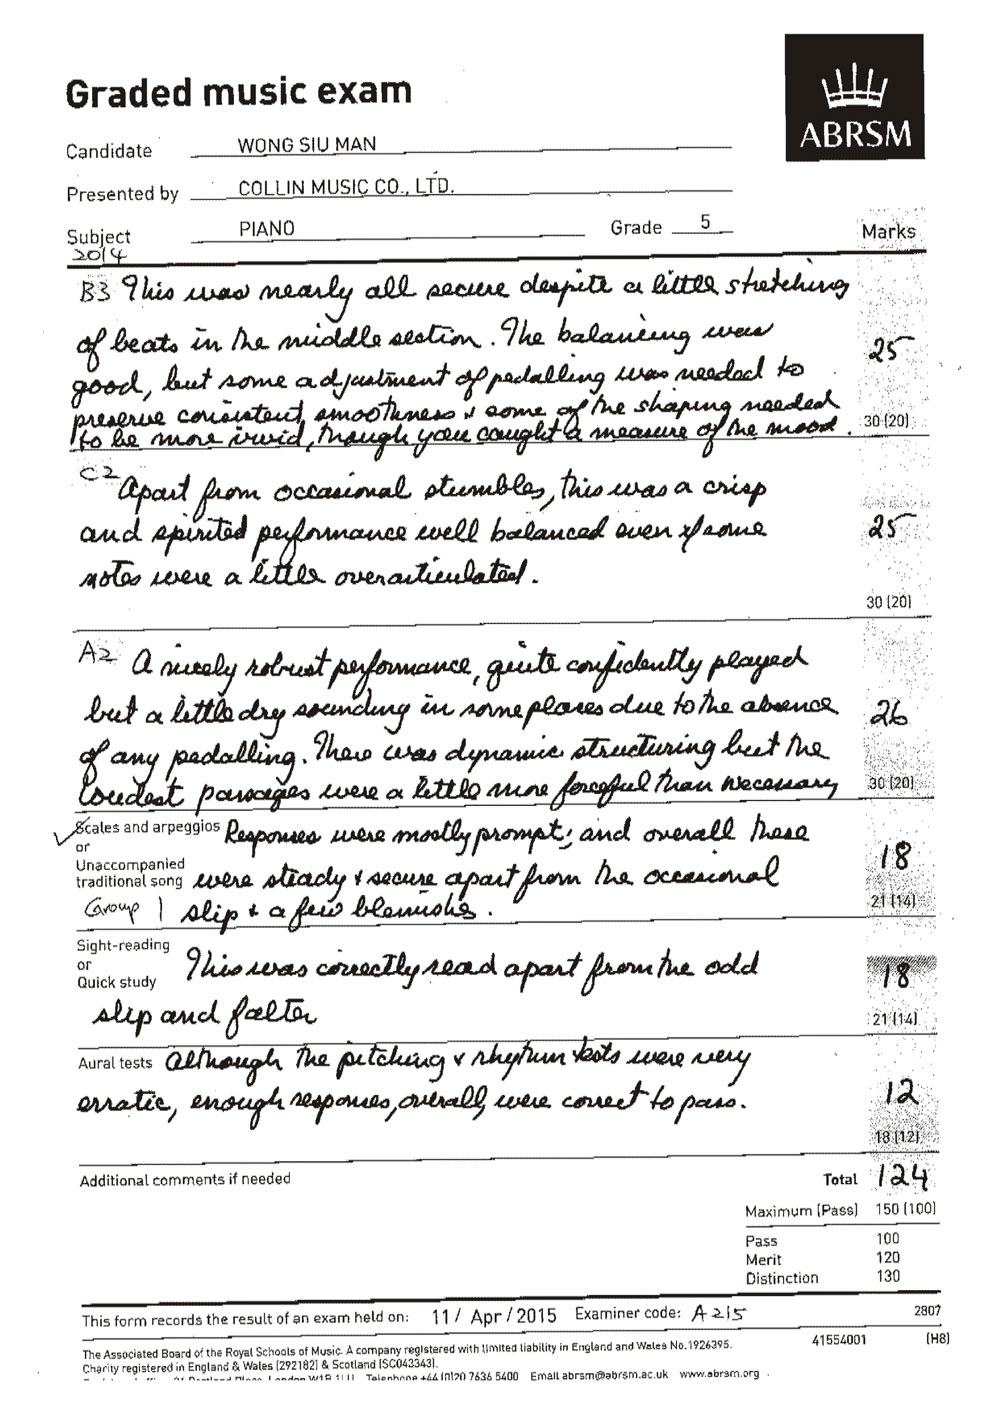 Graded music exam
ABRSM
Candidate WONG SIU MAN
Presented by COLLIN MUSIC CO., LTD.
Subject PIANO Grade 5 Marks
2014
B3 This was nearly all secure despite a little stretching
of beats in the middle section. The balancing was
good, but some adjustment of pedalling was needed to
preserve consistent smoothness & some of the shaping needed
to be more vivid, though you caught a measure of the mood.
25
30 (20)
C2 Apart from occasional stumbles, this was a crisp
and spirited performance well balanced even if some
notes were a little overarticulated.
25
30 (20)
A2 A nicely robust performance, quite confidently played
but a little dry sounding in some places due to the absence
of any pedalling. There was dynamic structuring but the
loudest passages were a little more forceful than necessary
26
30 (20)
Scales and arpeggios Responses were mostly prompt; and overall these
or
Unaccompanied
traditional song were steady & secure apart from the occasional
Group 1 slip & a few blemishes.
18
21 (14)
Sight-reading
or
Quick study This was correctly read apart from the odd
slip and falter
18
21 (14)
Aural tests Although the pitching & rhythm tests were very
erratic, enough responses, overall, were correct to pass.
12
18 (12)
Additional comments if needed Total 124
Maximum (Pass) 150 (100)
Pass 100
Merit 120
Distinction 130
This form records the result of an exam held on: 11 / Apr / 2015 Examiner code: A215 2807
The Associated Board of the Royal Schools of Music. A company registered with limited liability in England and Wales No.1926395. 41554001 (H8)
Charity registered in England & Wales (292182) & Scotland (SC043343).
London W1B 1LU Telephone +44 (0)20 7636 5400 Email abrsm@abrsm.ac.uk www.abrsm.org